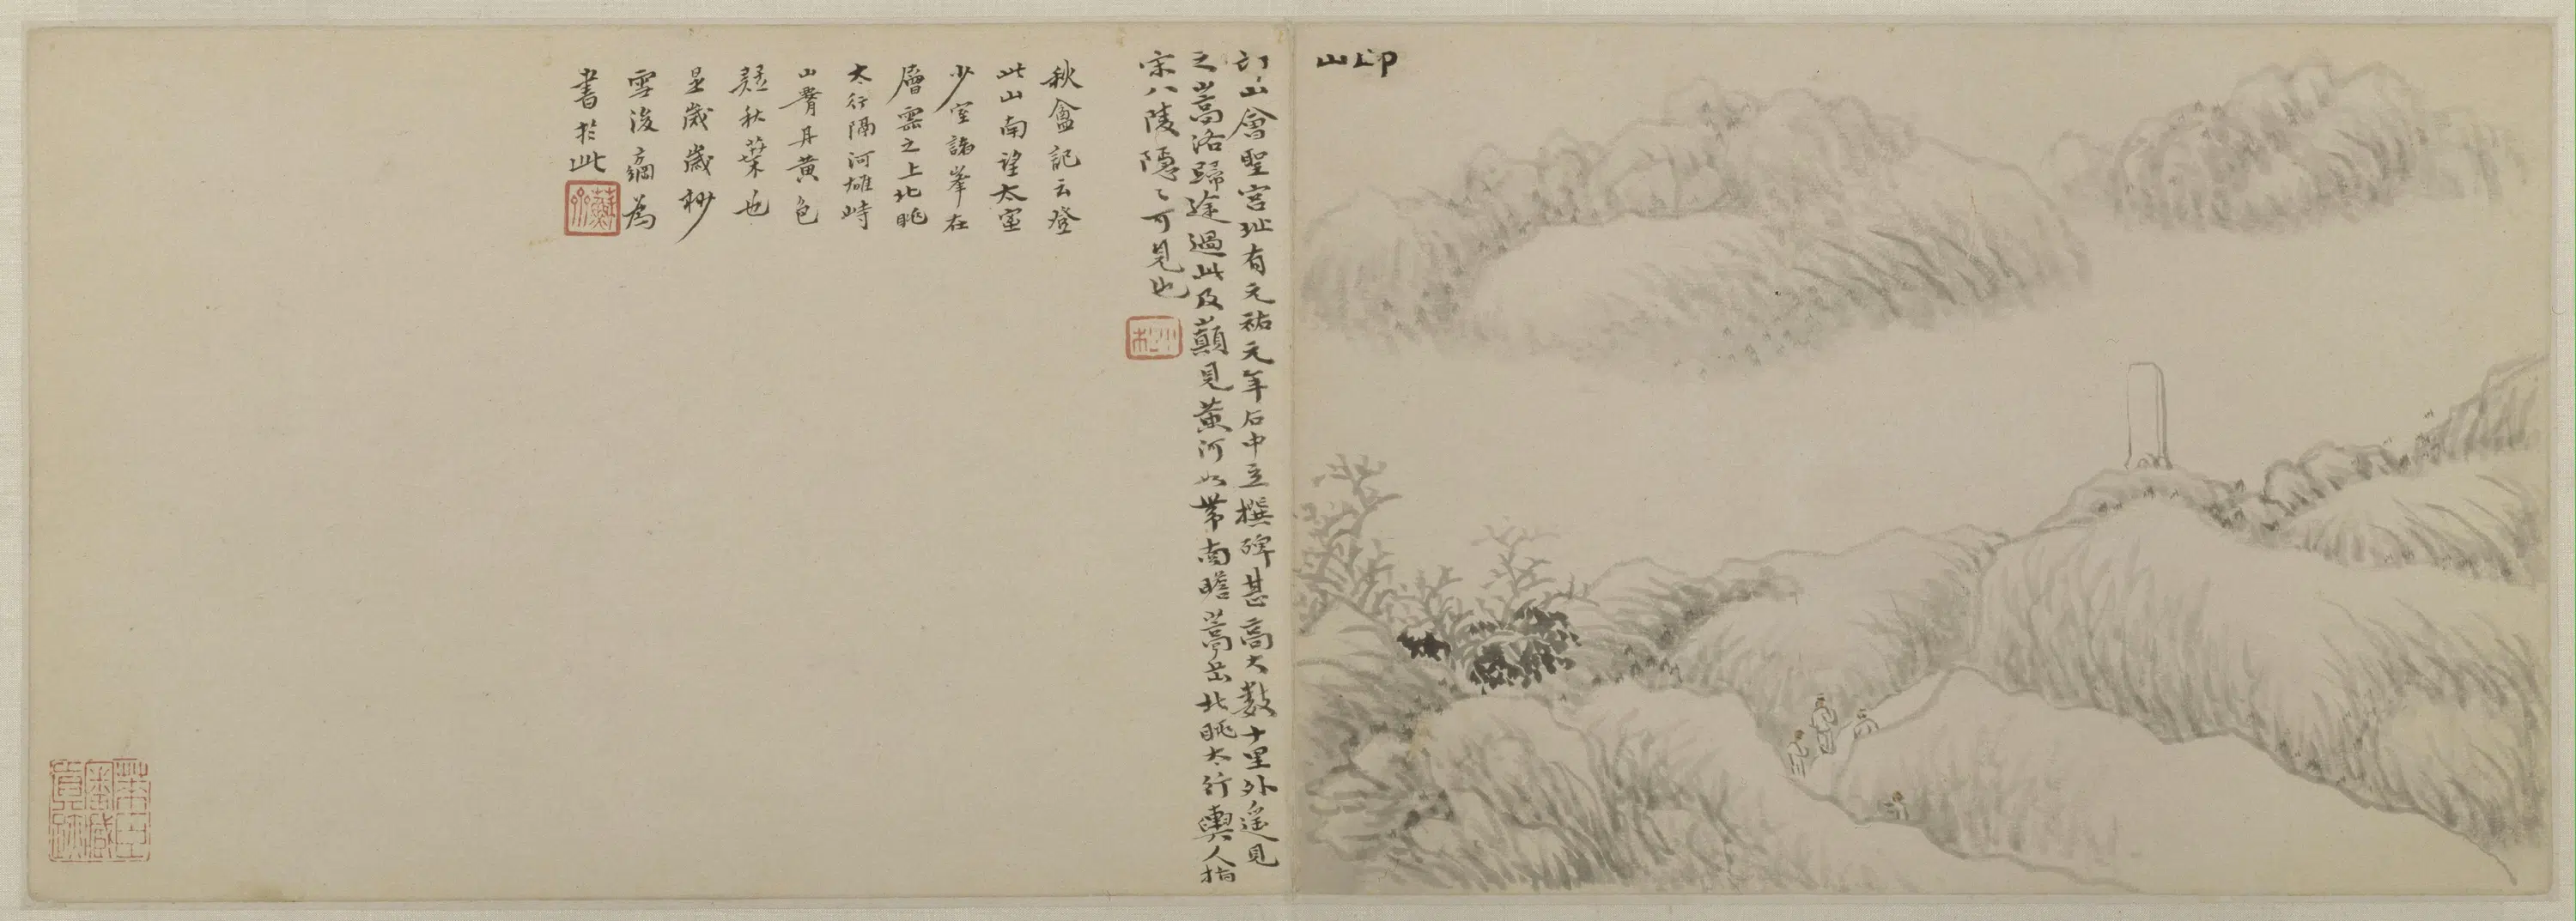 邙山
邙山會聖宮址有元祐元年石中立撰碑甚高大數十里外遙見
之嵩洛歸途過此及巔見黃河如帶南瞻嵩岳北眺太行輿人指
宋八陵隱〻可見也
小松
秋盦記云登
此山南望太室
少室諸峯在
層雲之上北眺
太行隔河雄峙
山丹黃色
疑秋葉也
是歲歲杪
雪後方綱為
書於此
萊臣審藏真跡